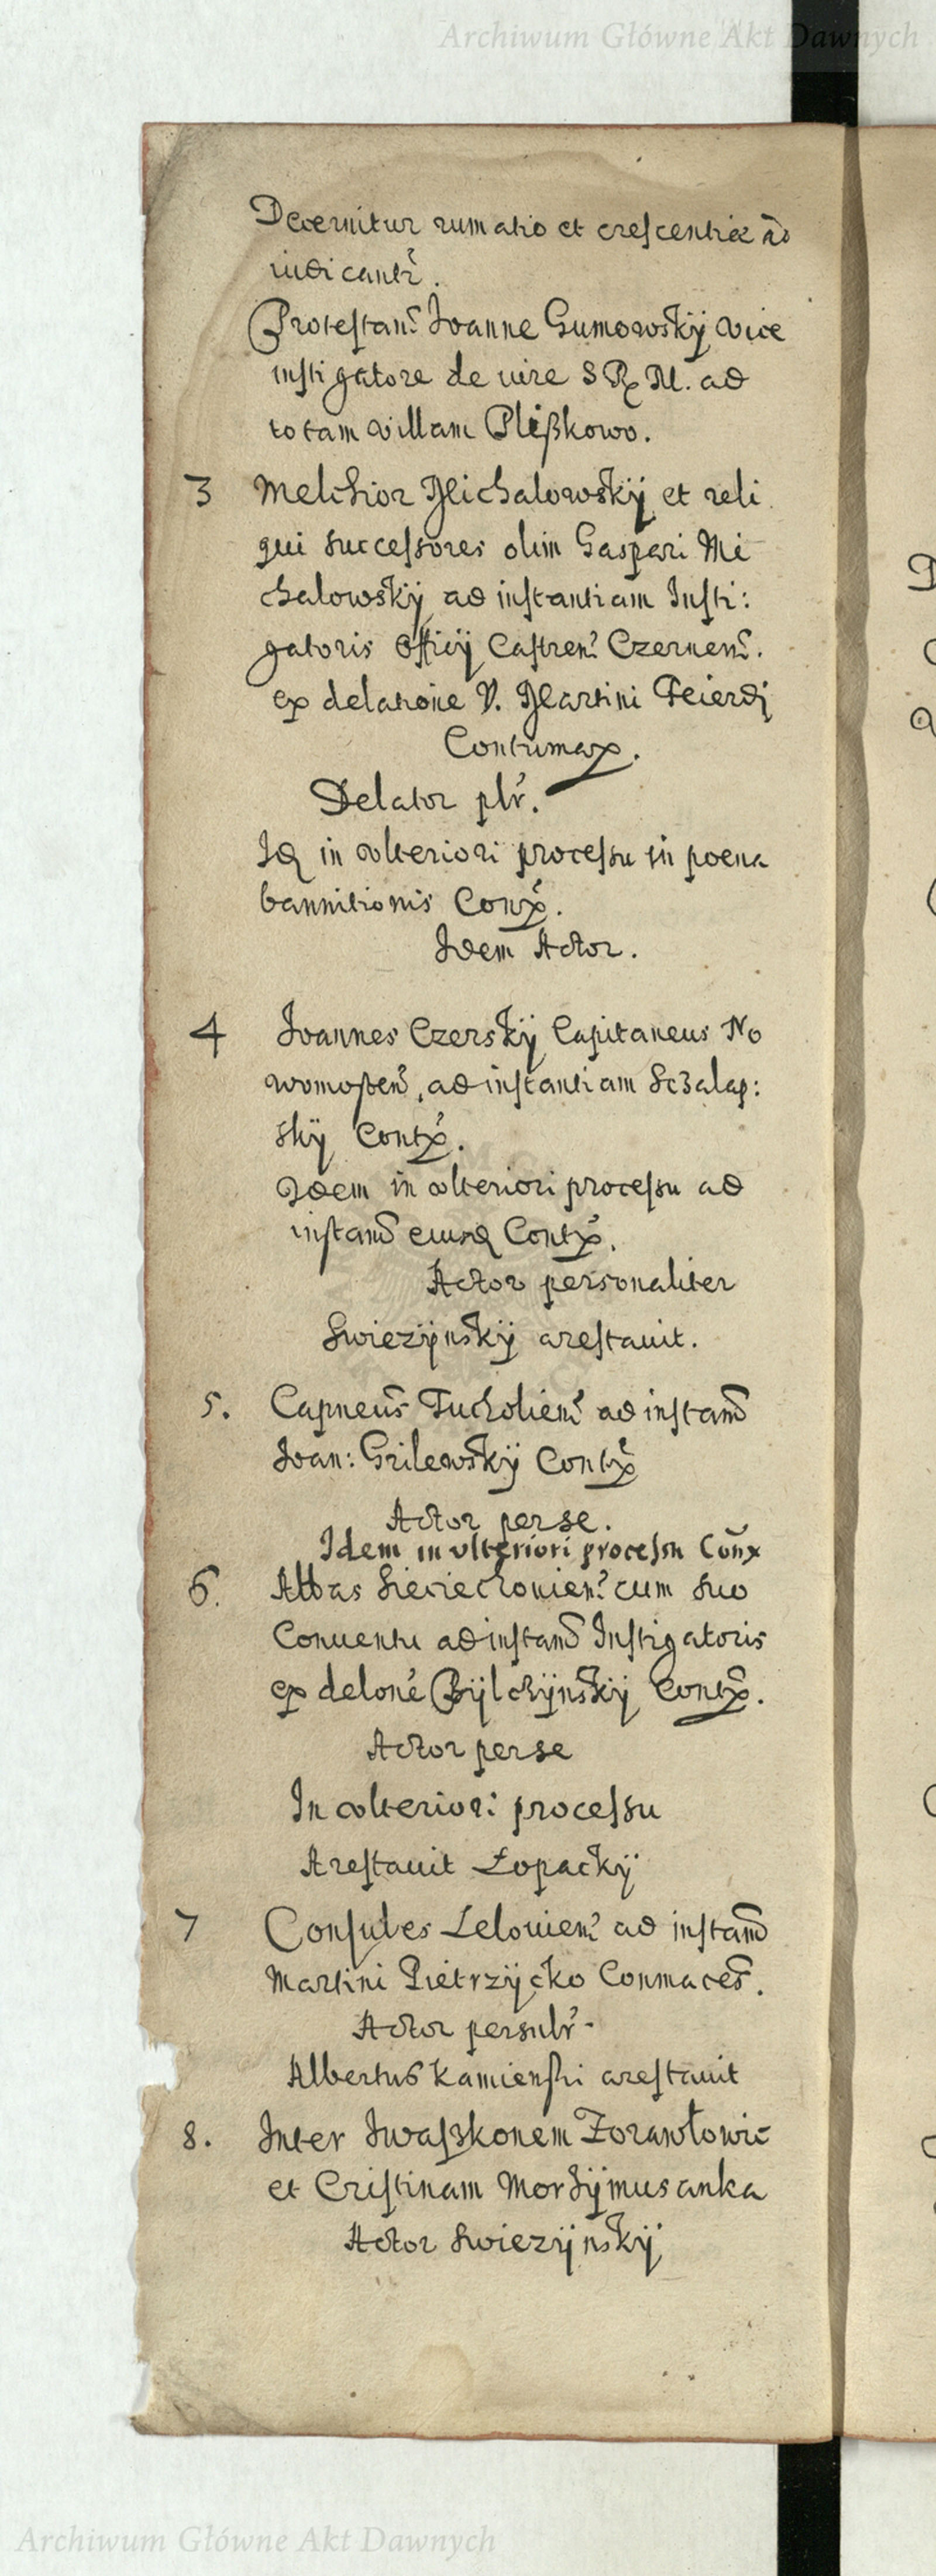 Archiwum Główne Akt Dawnych
Decernitur rumatio et crescentiæ ad
iudicantr̃.
Protestañ Joanne Gumowskÿ vice
instigatore de iure S R M. ad
totam villam Plißkowo.
3 Melchior Michalowskÿ et reli
qui successores olim Gaspari Mi
chalowskÿ ad instantiam Insti:
gatoris officÿ Castreñ Czerneñ.
ex delatione V. Martini Feierdj
Contumax.
Delator plr̃.
Idẽ in vlteriori processu in poena
bannitionis Conx̃.
Idem Actor.
4 Joannes Czerskÿ Capitaneus No
womosteñ, ad instantiam Sczalap:
skÿ Contx̃.
Idem in vlteriori processu ad
instañ eiusd Contx̃.
Actor personaliter
Swiezÿnskÿ arestauit.
5. Capneus̃ Tucholieñ ad instañ
Joan: Grilewskÿ Contx̃
Actor perse.
Idem in vlteriori processu Coñx
6. Abbas Sieciechouieñ cum suo
Conuentu ad instañ Instigatoris
ex deloñe Bÿlchÿnskÿ Contx̃.
Actor perse
In vlteriori processu
Arestauit Łopackÿ
7 Consules Lelouieñ ad instañ
Martini Pietrzÿcko Conmaces̃.
Actor persnlr̃
Albertus Kamienski arestauit
8. Inter Iwasskonem Zorawłowic
et Cristinam Mordÿmusanka
Actor Swiezÿnskÿ
Archiwum Główne Akt Dawnych